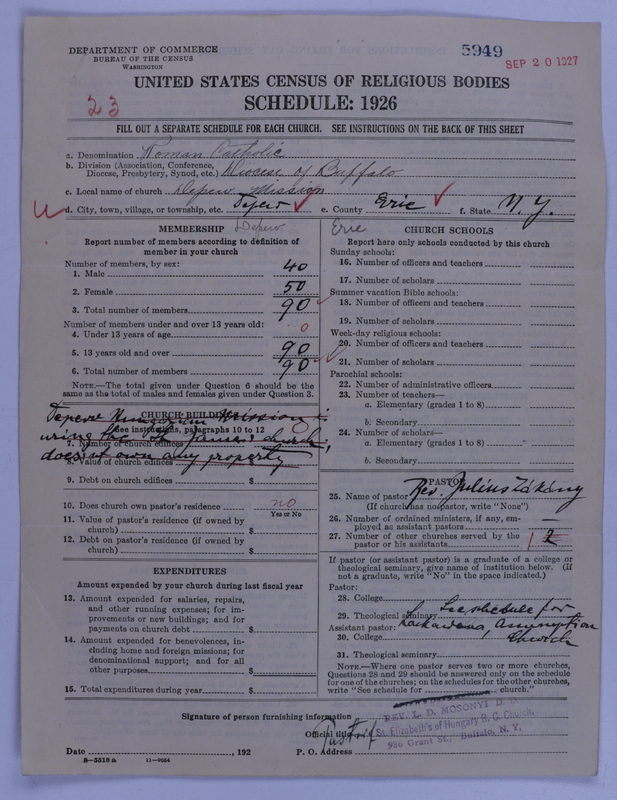 DEPARTMENT OF COMMERCE
BUREAU OF THE CENSUS
WASHINGTON
5949
SEP 20 1927
23
UNITED STATES CENSUS OF RELIGIOUS BODIES
SCHEDULE: 1926
FILL OUT A SEPARATE SCHEDULE FOR EACH CHURCH. SEE INSTRUCTIONS ON THE BACK OF THIS SHEET
a. Denomination Roman Catholic
b. Division (Association, Conference, Diocese, Presbytery, Synod, etc.) Diocese of Buffalo
c. Local name of church Depew Mission
d. City, town, village, or township, etc. Depew e. County Erie f. State N. Y.
Depew Erie
MEMBERSHIP
Report number of members according to definition of member in your church
Number of members, by sex:
1. Male 40
2. Female 50
3. Total number of members 90
Number of members under and over 13 years old:
4. Under 13 years of age 0
5. 13 years old and over 90
6. Total number of members 90
NOTE.—The total given under Question 6 should be the same as the total of males and females given under Question 3.
CHURCH BUILDINGS
See instructions, paragraphs 10 to 12
Depew Hungarian Mission is
using the St. James church,
doesn't own any property
7. Number of church edifices 0
8. Value of church edifices
9. Debt on church edifices $
10. Does church own pastor's residence no
Yes or No
11. Value of pastor's residence (if owned by church) $
12. Debt on pastor's residence (if owned by church) $
EXPENDITURES
Amount expended by your church during last fiscal year
13. Amount expended for salaries, repairs, and other running expenses; for improvements or new buildings; and for payments on church debt $
14. Amount expended for benevolences, including home and foreign missions; for denominational support; and for all other purposes $
15. Total expenditures during year $
CHURCH SCHOOLS
Report here only schools conducted by this church
Sunday schools:
16. Number of officers and teachers
17. Number of scholars
Summer vacation Bible schools:
18. Number of officers and teachers
19. Number of scholars
Week-day religious schools:
20. Number of officers and teachers
21. Number of scholars
Parochial schools:
22. Number of administrative officers
23. Number of teachers—
a. Elementary (grades 1 to 8)
b. Secondary
24. Number of scholars—
a. Elementary (grades 1 to 8)
b. Secondary
PASTOR
25. Name of pastor Rev. Julius Zákány
(If church has no pastor, write "None")
26. Number of ordained ministers, if any, employed as assistant pastors —
27. Number of other churches served by the pastor or his assistants 1 2
If pastor (or assistant pastor) is a graduate of a college or theological seminary, give name of institution below. (If not a graduate, write "No" in the space indicated.)
Pastor:
28. College
29. Theological seminary See schedule for
Assistant pastor: Lackawanna, Assumption
30. College Church
31. Theological seminary
NOTE.—Where one pastor serves two or more churches, Questions 28 and 29 should be answered only on the schedule for one of the churches; on the schedules for the other churches, write "See schedule for church."
Signature of person furnishing information
REV. L. D. MOSONYI D. D.
Official title
St. Elizabeth's of Hungary R. C. Church,
Date , 192 P. O. Address
986 Grant St., Buffalo, N. Y.
8—5518 a 11—9054